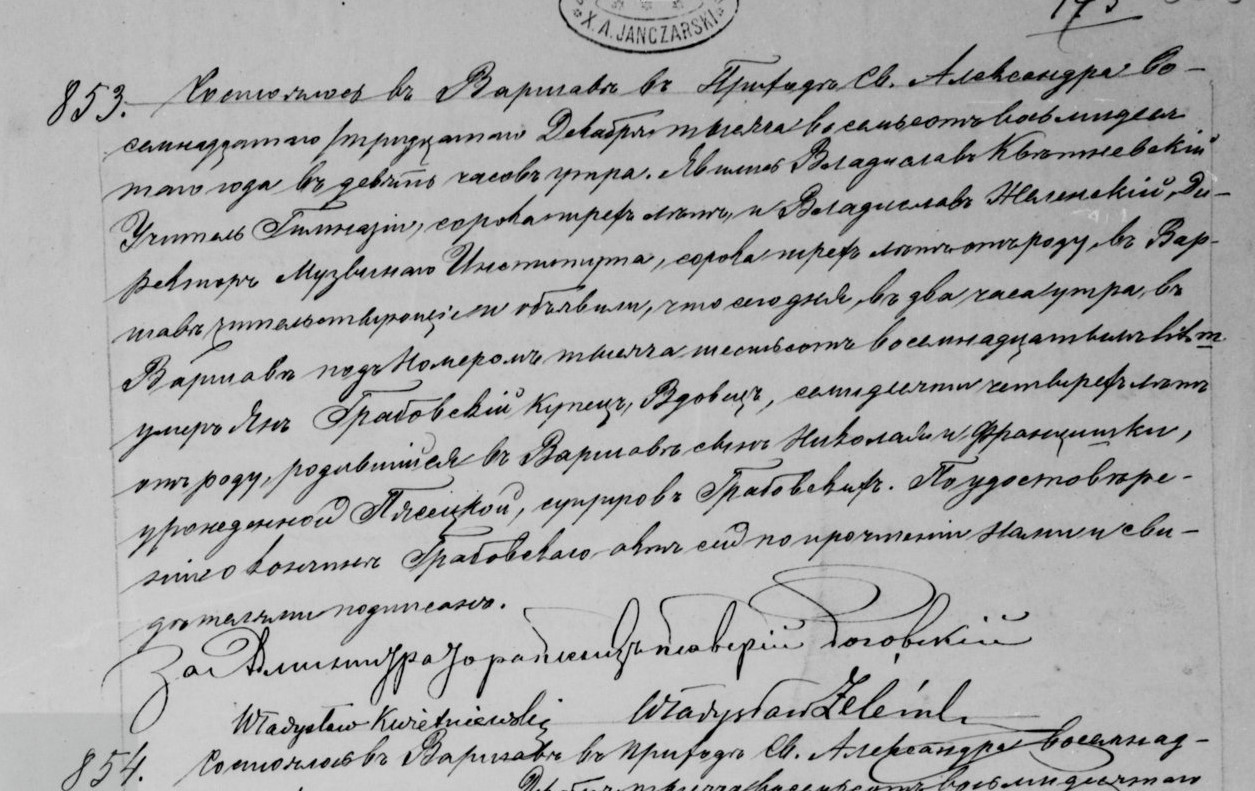 X. A. JANCZARSKI
853. Состоялось въ Варшавѣ въ Приходѣ Св. Александра во-
семнадцатаго /тридцатаго Декабря тысяча восемьсотъ восьмидеся-
таго года въ девять часовъ утра. Явились Владиславъ Квѣтневскій
Учитель Гимназіи, сорока трехъ лѣтъ, и Владиславъ Желенскій, Ди-
ректоръ Музычнаго Института, сорока трехъ лѣтъ отъ роду, въ Вар-
шавѣ жительствующіе и объявили, что сегодня, въ два часа утра, въ
Варшавѣ подъ Номеромъ тысяча шестьсотъ восемнадцатымъ
умеръ Янъ Грабовскій Купецъ, Вдовецъ, семидесяти четырехъ лѣтъ
отъ роду, родившійся въ Варшавѣ сынъ Николая и Францишки,
урожденной Пясецкой, супруговъ Грабовскихъ. По удостовѣре-
ніи о кончинѣ Грабовскаго актъ сей по прочтеніи Нами и сви-
дѣтелями подписанъ.
За Администратора Роговскій
Władysław Kwietniewski Władysław Żeleński
854. Состоялось въ Варшавѣ въ Приходѣ Св. Александра восемнад-
Декабря тысяча восемьсотъ восьмидесятаго